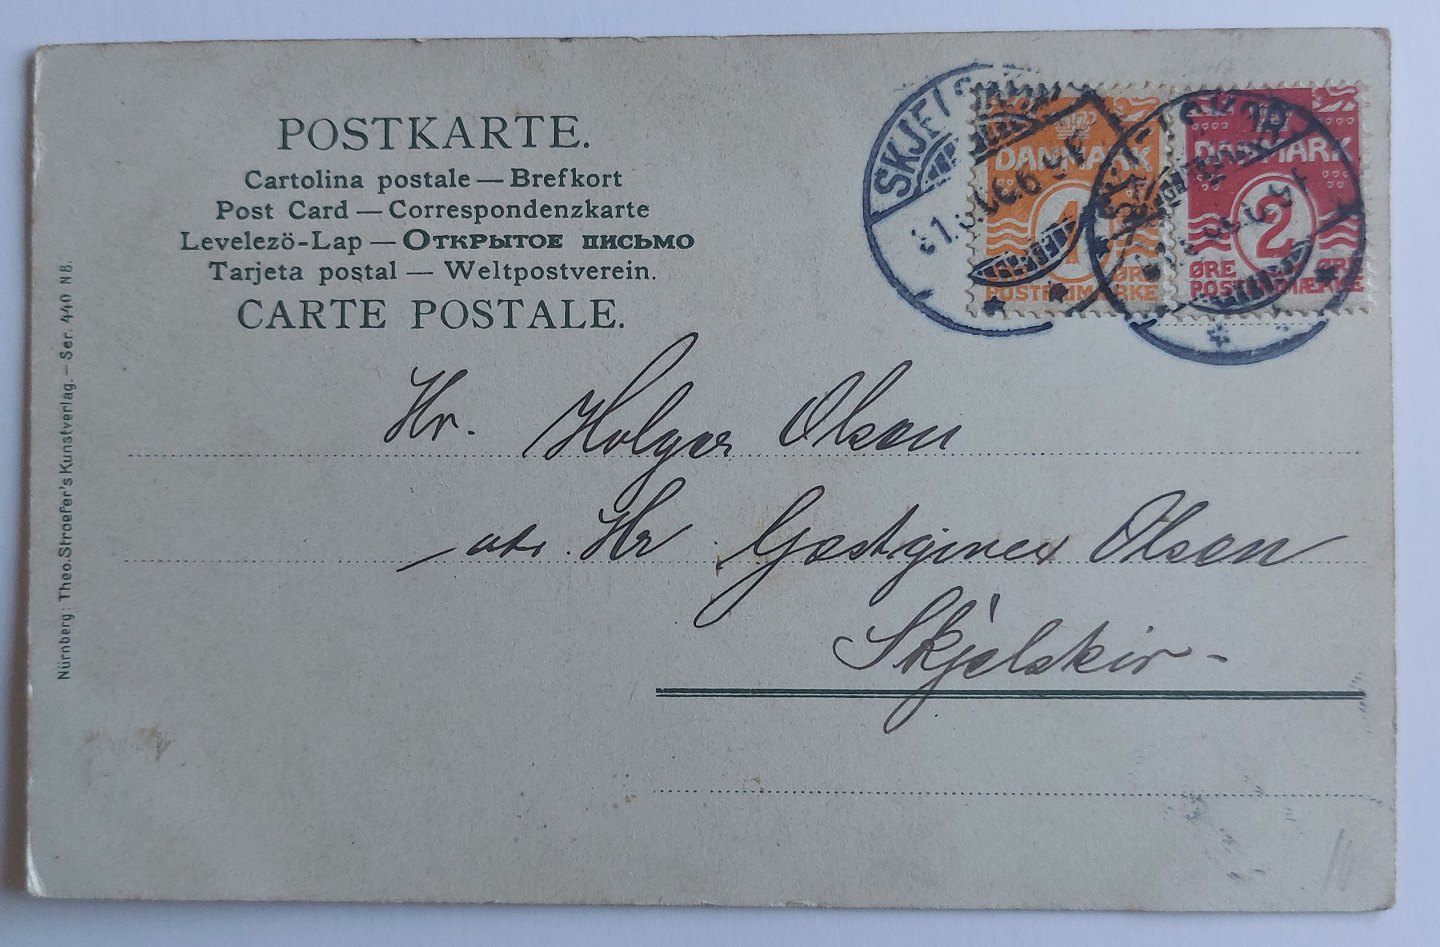 POSTKARTE.
Cartolina postale — Brefkort
Post Card — Correspondenzkarte
Levelezö-Lap — Открытое письмо
Tarjeta postal — Weltpostverein.
CARTE POSTALE.
Nürnberg: Theo. Stroefer's Kunstverlag. — Ser. 440 N 8.
SKJELSKØR
DANMARK
1
ØRE
POSTFRIMÆRKE
DANMARK
2
ØRE ØRE
POSTFRIMÆRKE
Hr. Holger Olsen
adr. Hr Gæstgiver Olsen
Skjelskør
10